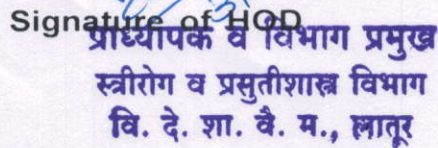 Signature of HOD
प्राध्यापक व विभाग प्रमुख
स्त्रीरोग व प्रसुतीशास्त्र विभाग
वि. दे. शा. वै. म., लातूर